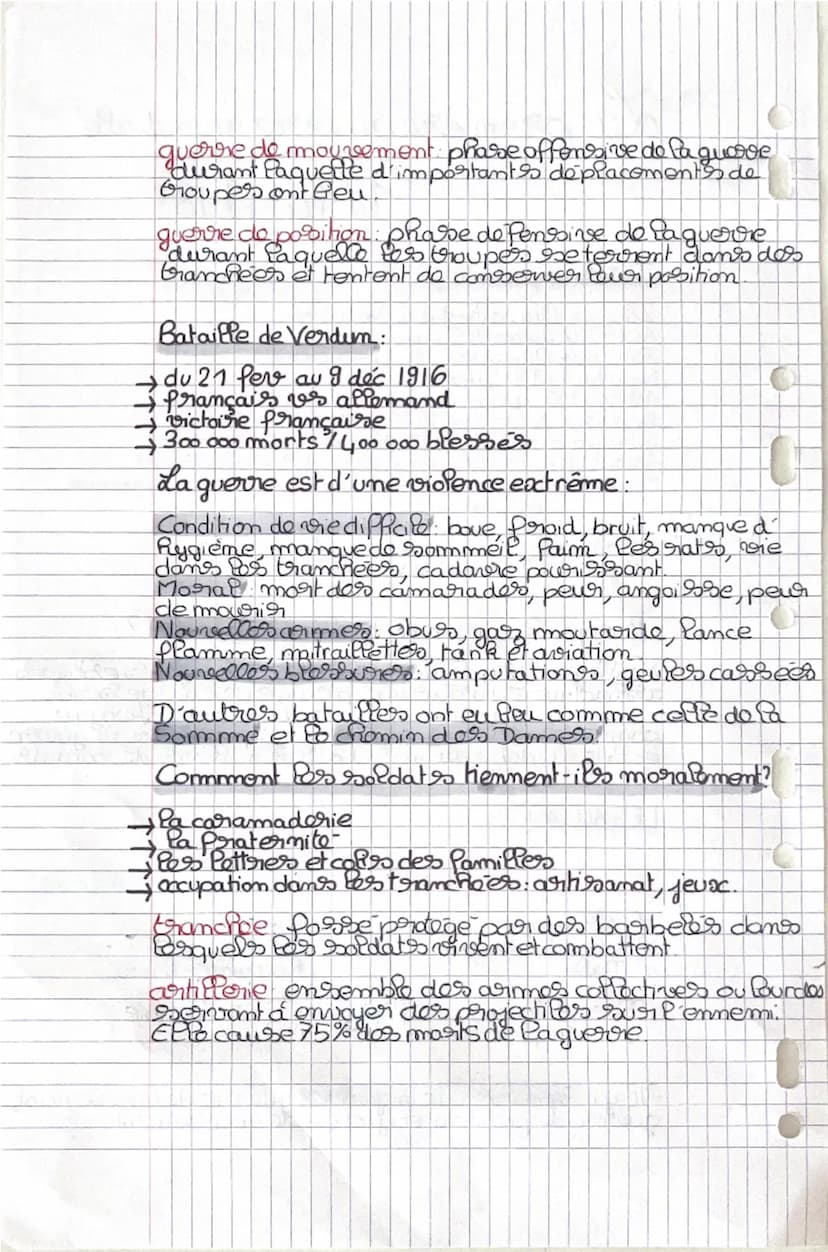 guerre de mouvement : phase offensive de la guerre
durant laquelle d'importants déplacements de
troupes ont lieu.
guerre de position : phase défensive de la guerre
durant laquelle les troupes se terrent dans des
tranchées et tentent de conserver leur position.
Bataille de Verdun :
→ du 21 fev au 9 déc 1916
→ français vs allemand
→ victoire française
→ 300 000 morts / 400 000 blessés
La guerre est d'une violence extrême :
Condition de vie difficile : boue, froid, bruit, manque d'
hygiène, manque de sommmeil, faim, les rats, vie
dans les tranchées, cadavre pourissant.
Moral : mort des camarades, peur, angoisse, peur
de mourir
Nouvelles armes : obus, gaz moutarde, lance
flamme, mitraillettes, tank et aviation.
Nouvelles blessures : amputations, geules cassées
D'autres batailles ont eu lieu comme celle de la
Somme et le chemin des Dames.
Commment les soldats tiennent-ils moralement?
→ la caramaderie
→ la fraternité
→ les lettres et colis des familles
→ occupation dans les tranchées : artisanat, jeux.
tranchée : fossé protégé par des barbelés dans
lesquels les soldats vivent et combattent.
artillerie : ensemble des armes collectives ou lourdes
servant à envoyer des projectiles sur l'ennemi.
Elle cause 75% des morts de la guerre.